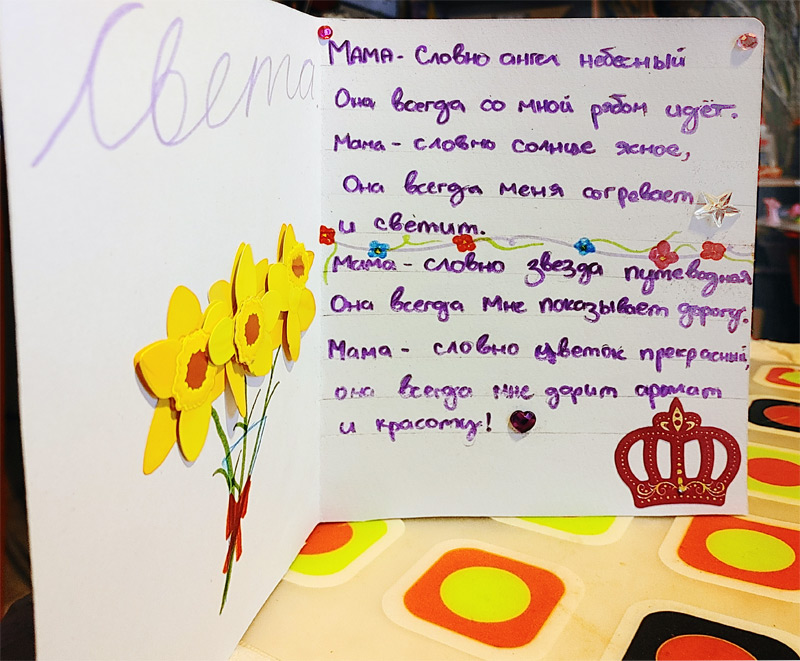 Света
Мама - словно ангел небесный
Она всегда со мной рябом идёт.
Мама - словно солнце ясное,
Она всегда меня согревает
и светит.
Мама - словно звезда путеводная
Она всегда мне показывает дорогу.
Мама - словно цветок прекрасный,
она всегда мне дарит аромат
и красоту!